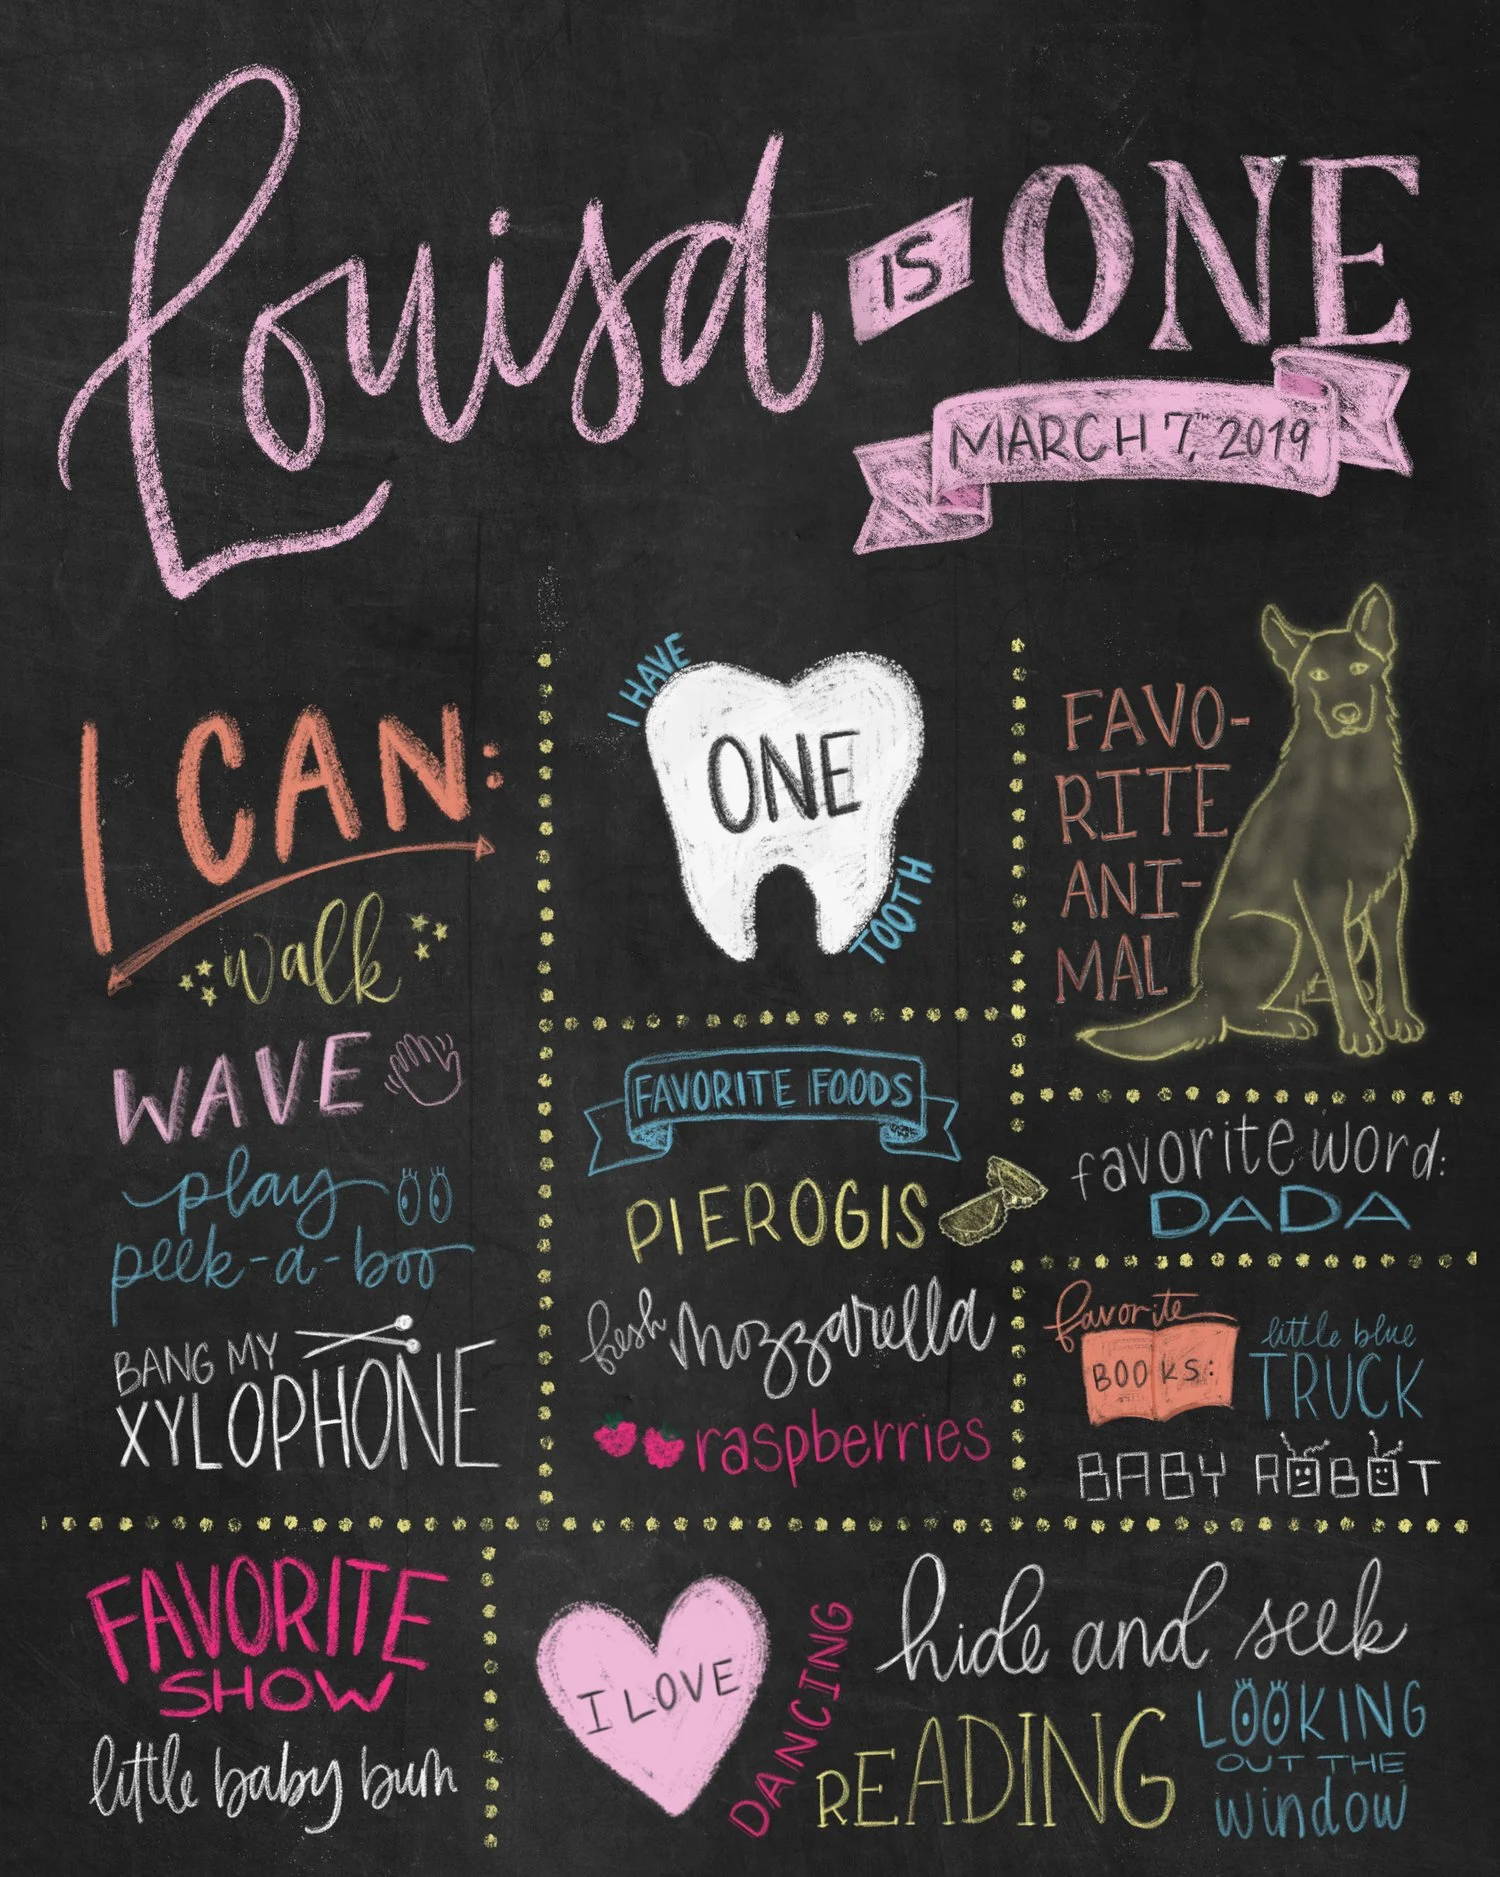 Louisa IS ONE
MARCH 7TH, 2019
I CAN:
walk
WAVE
play
peek-a-boo
BANG MY
XYLOPHONE
I HAVE
ONE
TOOTH
FAVORITE FOODS
PIEROGIS
fresh mozzarella
raspberries
FAVO-
RITE
ANI-
MAL
favorite word:
DADA
favorite
BOOKS:
little blue
TRUCK
BABY ROBOT
FAVORITE
SHOW
little baby bum
I LOVE
DANCING
hide and seek
READING
LOOKING
OUT THE
window